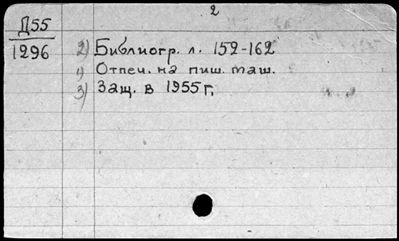 2
Д55
1296
2) Библиогр. л. 152-162
1) Отпеч. на пиш. маш.
3) Защ. в 1955 г.